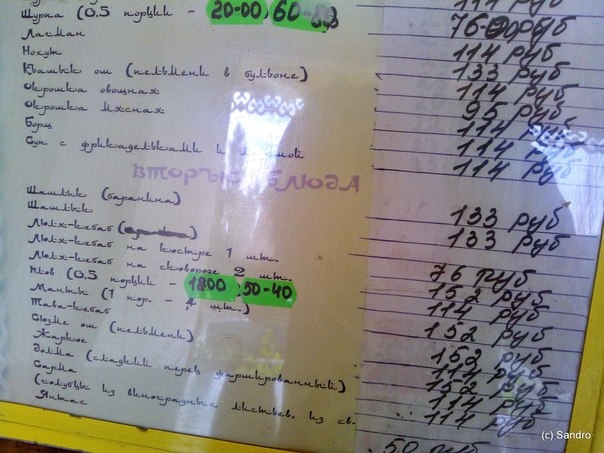 114 руб
Шурпа (0.5 порции - 20-00) 60-
Лагман 76 руб
Нохут 114 руб
Къашык ош (пельмени в бульоне) 133 руб
Окрошка овощная 114 руб
Окрошка мясная 95 руб
Борщ 114 руб
Суп с фрикадельками и 114 руб
114 руб
Шашлык (баранина)
Шашлык 133 руб
Люля-кебаб 133 руб
Люля-кебаб на костре 1 шт.
Люля-кебаб на сковороде 2 шт. 76 руб
Плов (0.5 порции - 1800) 50-40 152 руб
Манты (1 пор. - 4 шт.) 114 руб
Тава-кебаб
Сюзме ош (пельмени) 152 руб
Жаркое
Долма (сладкий перец фаршированный) 152 руб
Сарма 114 руб
(голубцы из виноградных листьев, из св. 152 руб
Янтык 114 руб
114 руб
50 руб
(c) Sandro